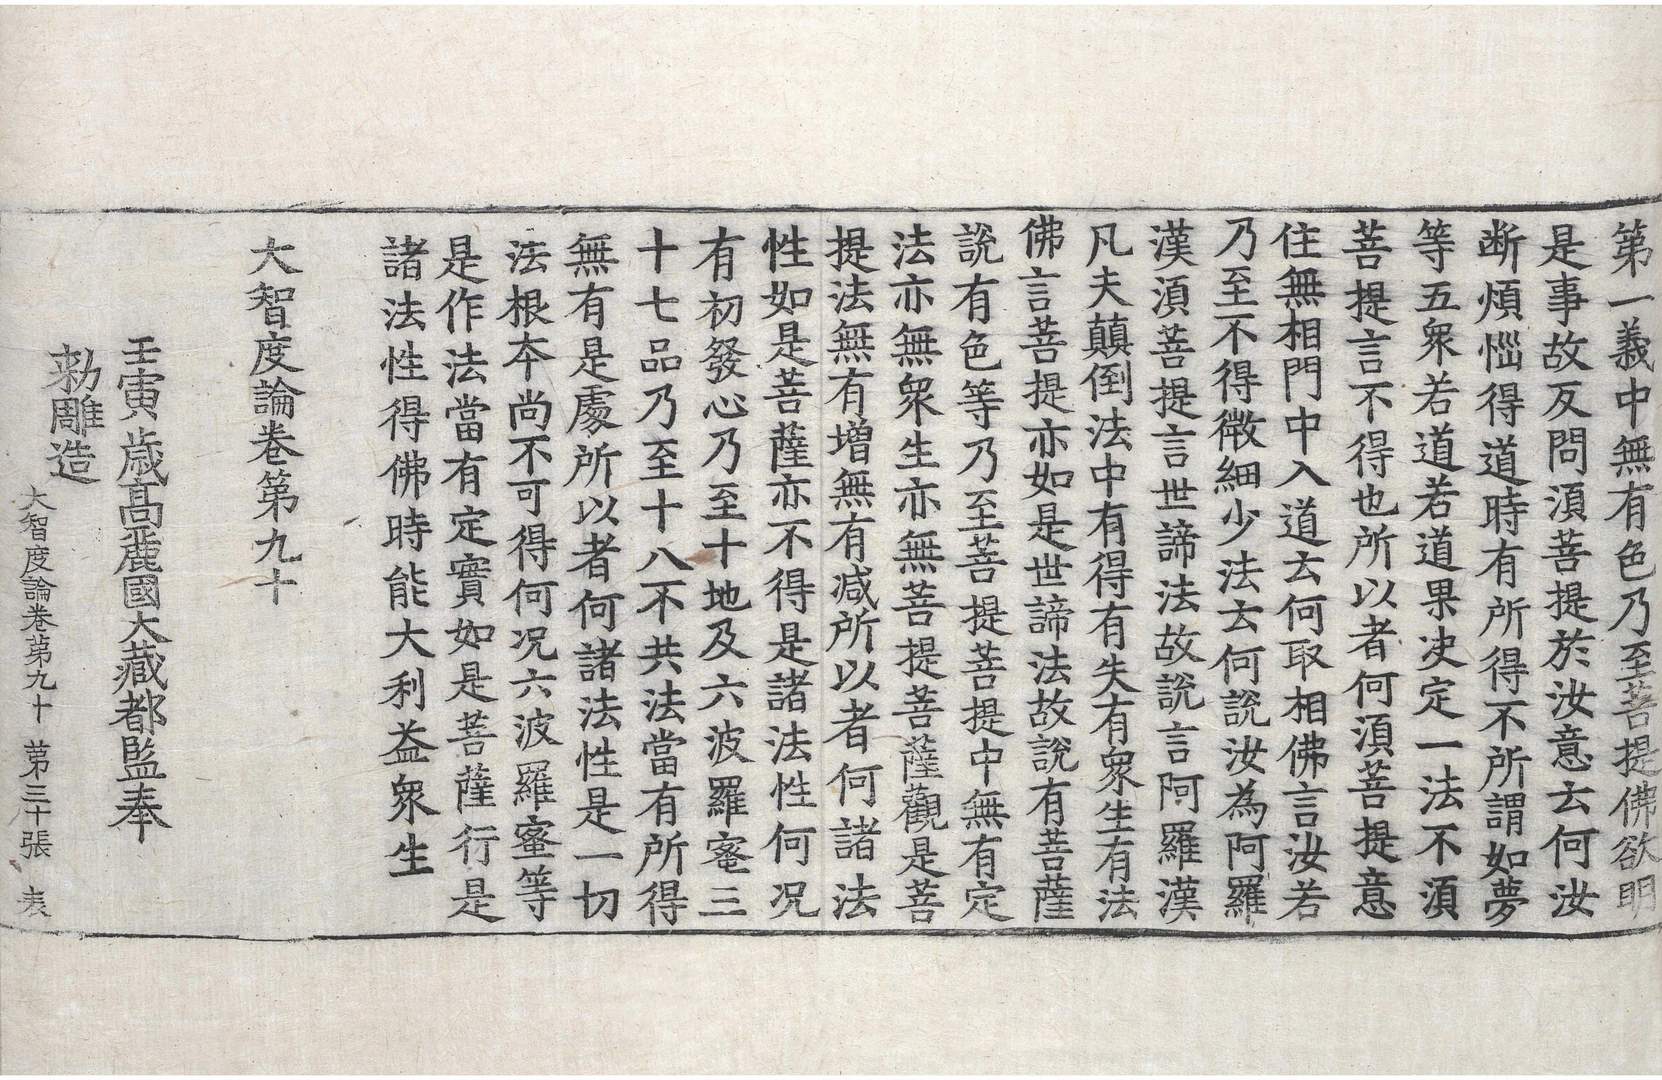 第一義中無有色乃至菩提佛欲明
是事故反問湏菩提於汝意云何汝
断煩惱得道時有所得不所謂如夢
等五衆若道若道果决定一法不湏
菩提言不得也所以者何湏菩提意
住無相門中入道云何取相佛言汝若
乃至不得微細少法云何說汝為阿羅
漢湏菩提言世諦法故說言阿羅漢
凡夫顛倒法中有得有失有衆生有法
佛言菩提亦如是世諦法故說有菩薩
說有色等乃至菩提菩提中無有定
法亦無衆生亦無菩提菩薩觀是菩
提法無有增無有减所以者何諸法
性如是菩薩亦不得是諸法性何况
有初發心乃至十地及六波羅蜜三
十七品乃至十八不共法當有所得
無有是處所以者何諸法性是一切
法根本尚不可得何况六波羅蜜等
是作法當有定實如是菩薩行是
諸法性得佛時能大利益衆生
大智度論卷第九十
壬寅歲高麗國大藏都監奉
勑雕造
大智度論卷第九十 第三十張 表